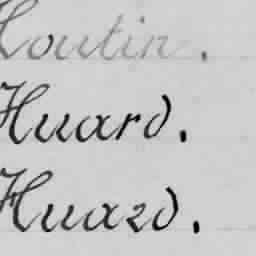 Loutin.
Huard.
Huard.